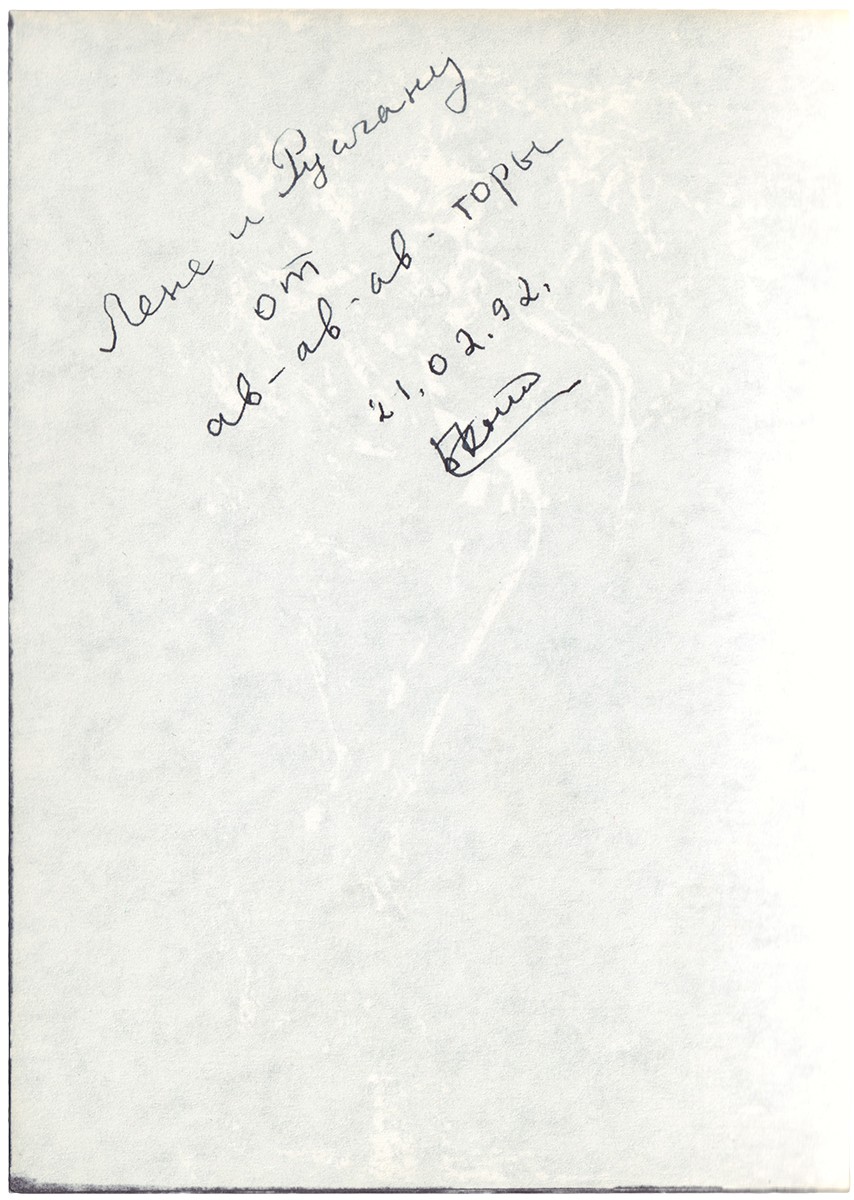 Лене и Руслану
от
ав-ав-ав-торы
21.02.92.